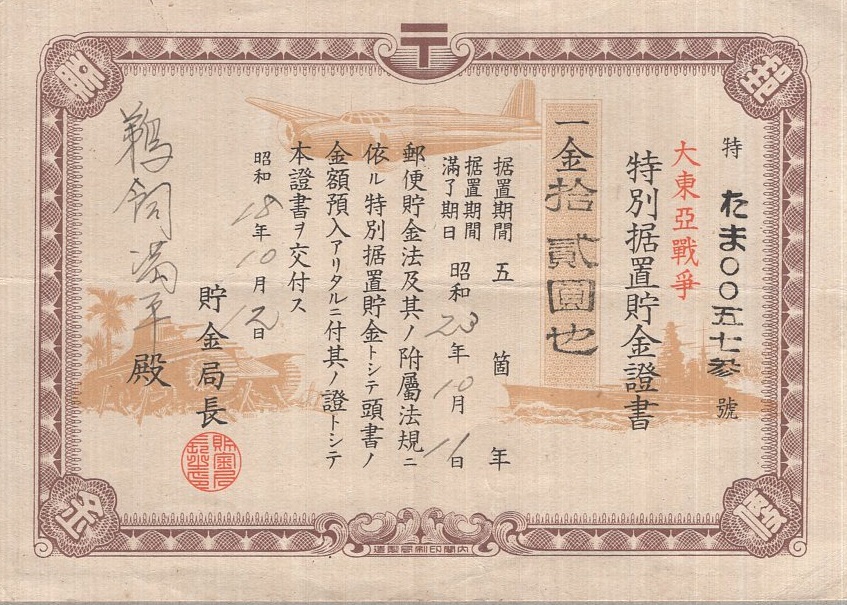 特 たま〇〇五七参 號
大東亞戰爭
特別据置貯金證書
一金拾貳圓也
据置期間 五 箇 年
据置期間滿了期日 昭和23年10月11日
郵便貯金法及其ノ附屬法規ニ
依ル特別据置貯金トシテ頭書ノ
金額預入アリタルニ付其ノ證トシテ
本證書ヲ交付ス
昭和18年10月12日
貯金局長
鵜飼満平殿
〒
內閣印刷局製造